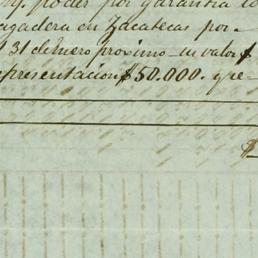 mi poder por garantia
agadera en Zacatecas por
31 de Enero proximo su valor $
epresentacion $50.000. que
$